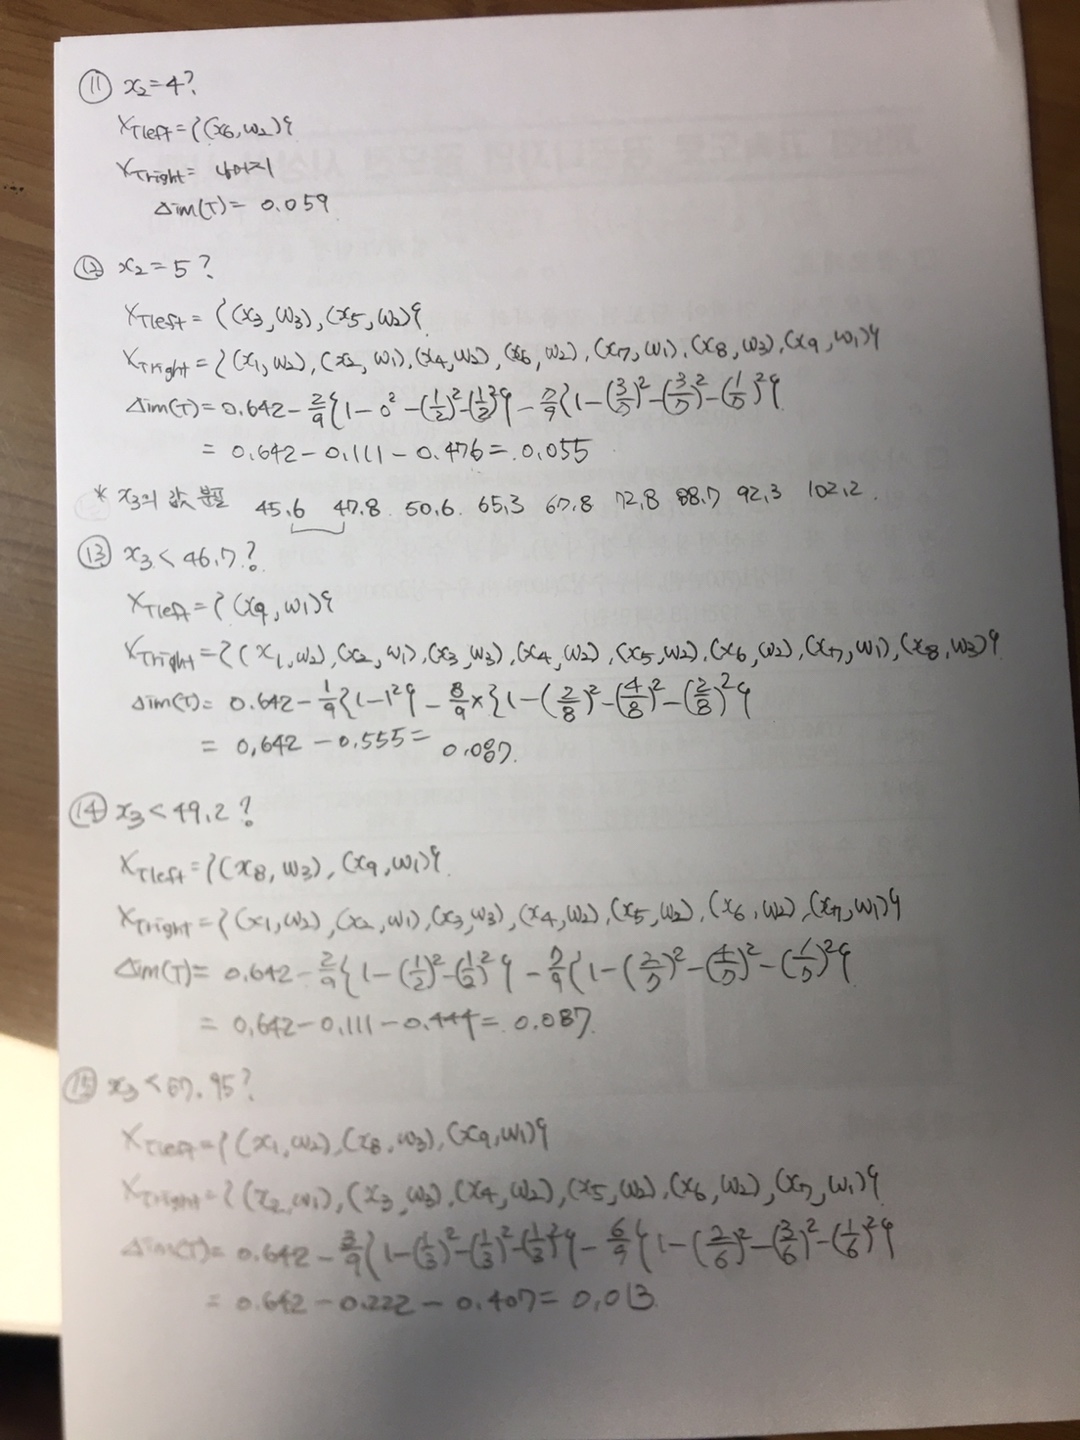 ⑪ x₂=4?
X_Tleft = {(x₆,ω₂)}
X_Tright = 나머지
Δim(T)= 0.059
⑫ x₂=5?
X_Tleft = {(x₃,ω₃),(x₅,ω₂)}
X_Tright = {(x₁,ω₂),(x₂,ω₁),(x₄,ω₂),(x₆,ω₂),(x₇,ω₁),(x₈,ω₃),(x₉,ω₁)}
Δim(T)= 0.642 - 2/9{1-0²-(1/2)²-(1/2)²} - 7/9{1-(3/7)²-(3/7)²-(1/7)²}
= 0.642-0.111-0.476=0.055
* x₃의 값 분포 45.6 47.8 50.6 65.3 67.8 72.8 88.7 92.3 102.2
⑬ x₃<46.7?
X_Tleft = {(x₉,ω₁)}
X_Tright = {(x₁,ω₂),(x₂,ω₁),(x₃,ω₃),(x₄,ω₂),(x₅,ω₂),(x₆,ω₂),(x₇,ω₁),(x₈,ω₃)}
Δim(T)= 0.642 - 1/9{1-1²} - 8/9×{1-(2/8)²-(4/8)²-(2/8)²}
= 0.642-0.555=0.087
⑭ x₃<49.2?
X_Tleft = {(x₈,ω₃),(x₉,ω₁)}
X_Tright = {(x₁,ω₂),(x₂,ω₁),(x₃,ω₃),(x₄,ω₂),(x₅,ω₂),(x₆,ω₂),(x₇,ω₁)}
Δim(T)= 0.642 - 2/9{1-(1/2)²-(1/2)²} - 7/9{1-(2/7)²-(4/7)²-(1/7)²}
= 0.642-0.111-0.444=0.087
⑮ x₃<57.95?
X_Tleft = {(x₁,ω₂),(x₈,ω₃),(x₉,ω₁)}
X_Tright = {(x₂,ω₁),(x₃,ω₃),(x₄,ω₂),(x₅,ω₂),(x₆,ω₂),(x₇,ω₁)}
Δim(T)= 0.642 - 3/9{1-(1/3)²-(1/3)²-(1/3)²} - 6/9{1-(2/6)²-(3/6)²-(1/6)²}
= 0.642-0.222-0.407=0.013